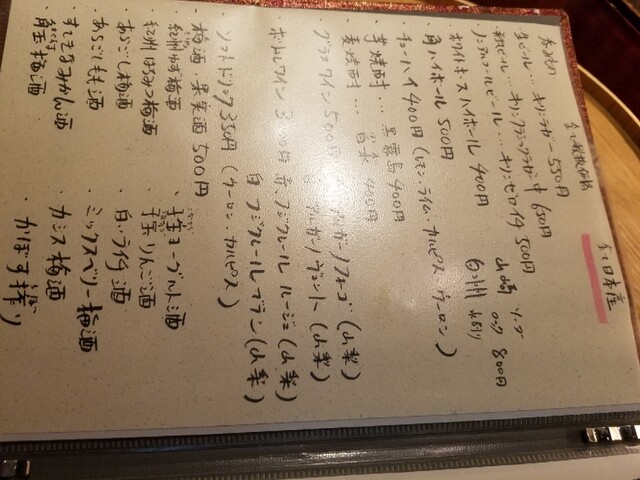 全て税抜価格 全て日本産
生ビール… キリンラガー 550円
瓶ビール… キリンクラシックラガー 中 650円
ノンアルコールビール… キリンゼロイチ 500円
ホワイトホースハイボール 400円
山崎 ソーダ
ロック 800円
白州 水割り
角ハイボール 500円
チューハイ 400円 (レモン・ライム・カルピス・ウーロン)
芋焼酎… 黒霧島 400円
麦焼酎… 400円
グラスワイン 500円 (山梨)
(山梨)
ボトルワイン 赤 フジクレール ルージュ (山梨)
白 フジクレール ブラン (山梨)
ソフトドリンク 350円 (ウーロン・カルピス)
梅酒・果実酒 500円
・紀州ゆず梅酒 ・ヨーグルト酒
・紀州はちみつ梅酒 ・りんご酒
・あらごし梅酒 ・白いライチ酒
・あらごし桃酒 ・ミックスベリー梅酒
・すてきなみかん酒 ・カシス梅酒
・角玉梅酒 ・かぼす搾り